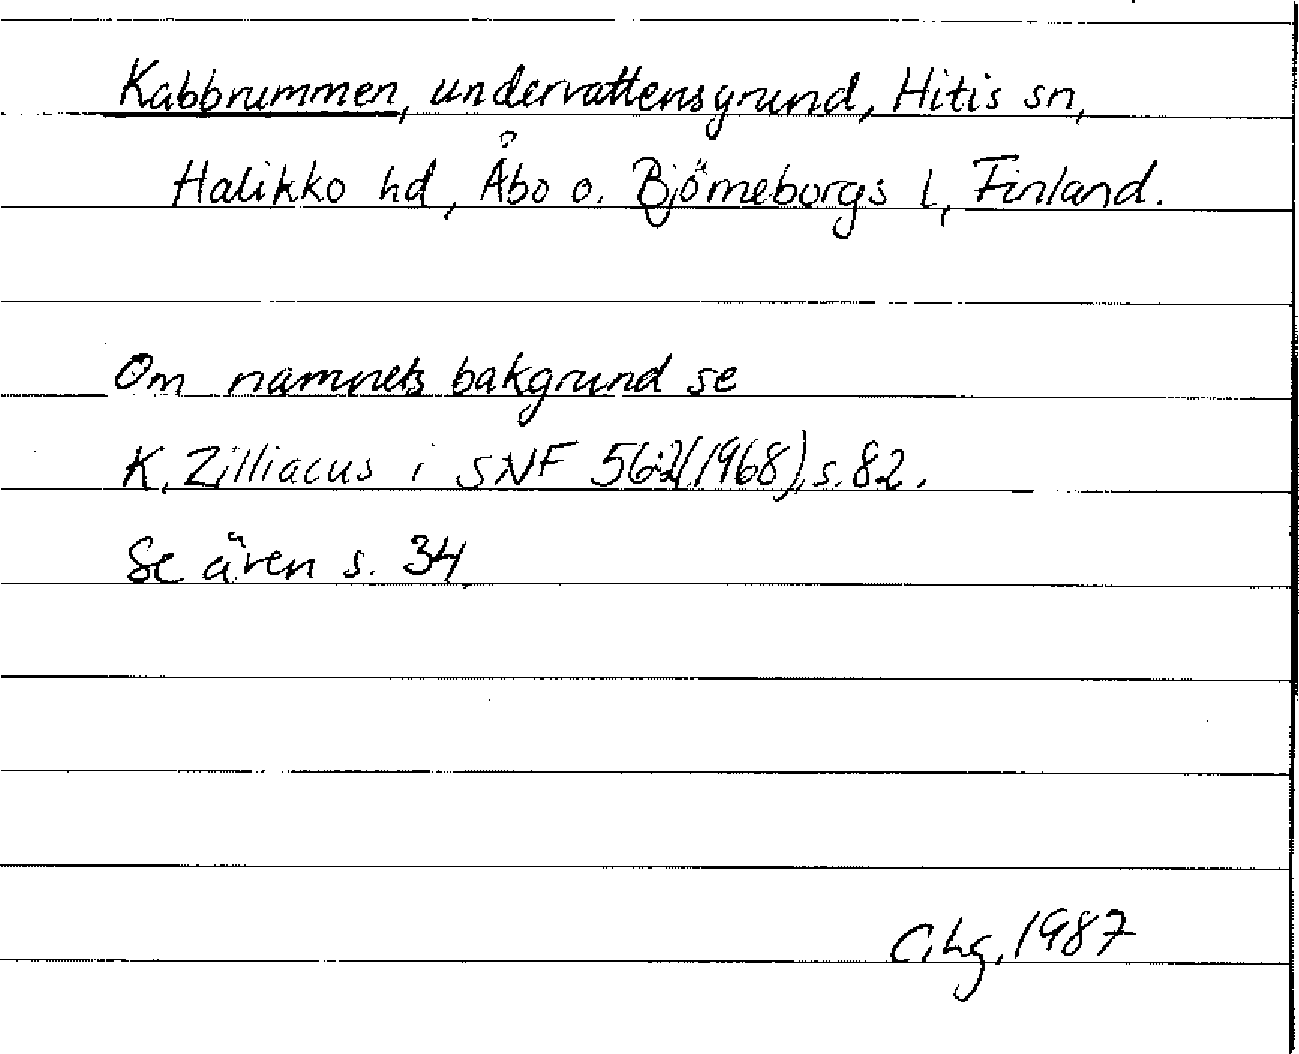 Kabbrummen, undervattensgrund, Hitis sn,
Halikko hd, Åbo o. Björneborgs l, Finland.
Om namnets bakgrund se
K. Zilliacus i SNF 56:2(1968), s. 82.
Se även s. 34
C.hg. 1987